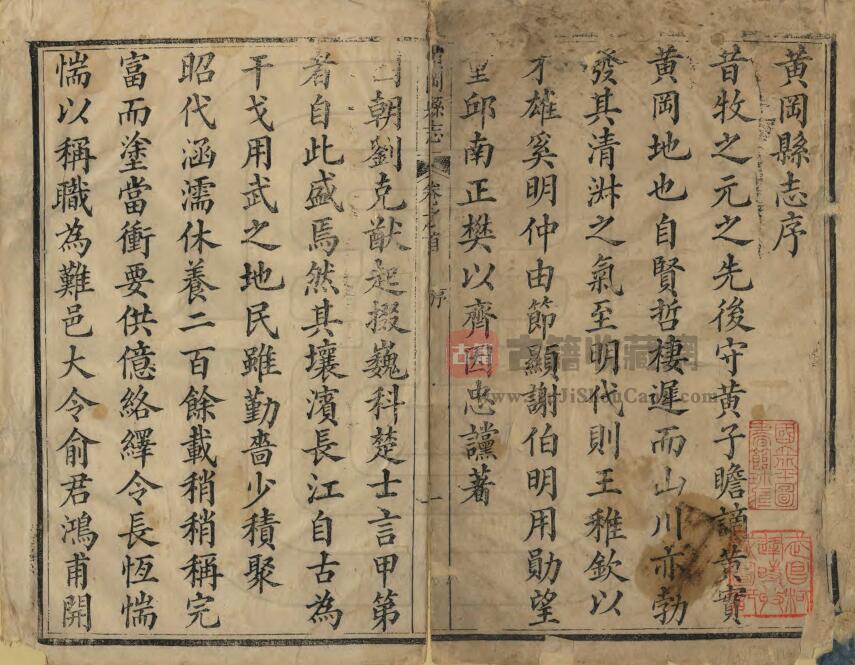 黃岡縣志序
昔牧之元之先後守黃子瞻謫黃實
黃岡地也自賢哲棲遲而山川亦勃
發其清淑之氣至明代則王稚欽以
才雄奚明仲由節顯謝伯明用勛望
邱南正樊以齊因忠讜著
黃岡縣志
卷之首
序
一
國朝劉克猷起掇巍科楚士言甲第
者自此盛焉然其壤濱長江自古為
干戈用武之地民雖勤嗇少積聚
昭代涵濡休養二百餘載稍稍稱完
富而塗當衝要供億絡繹令長恆惴
惴以稱職為難邑大令俞君鴻甫開
古籍
古籍收藏網